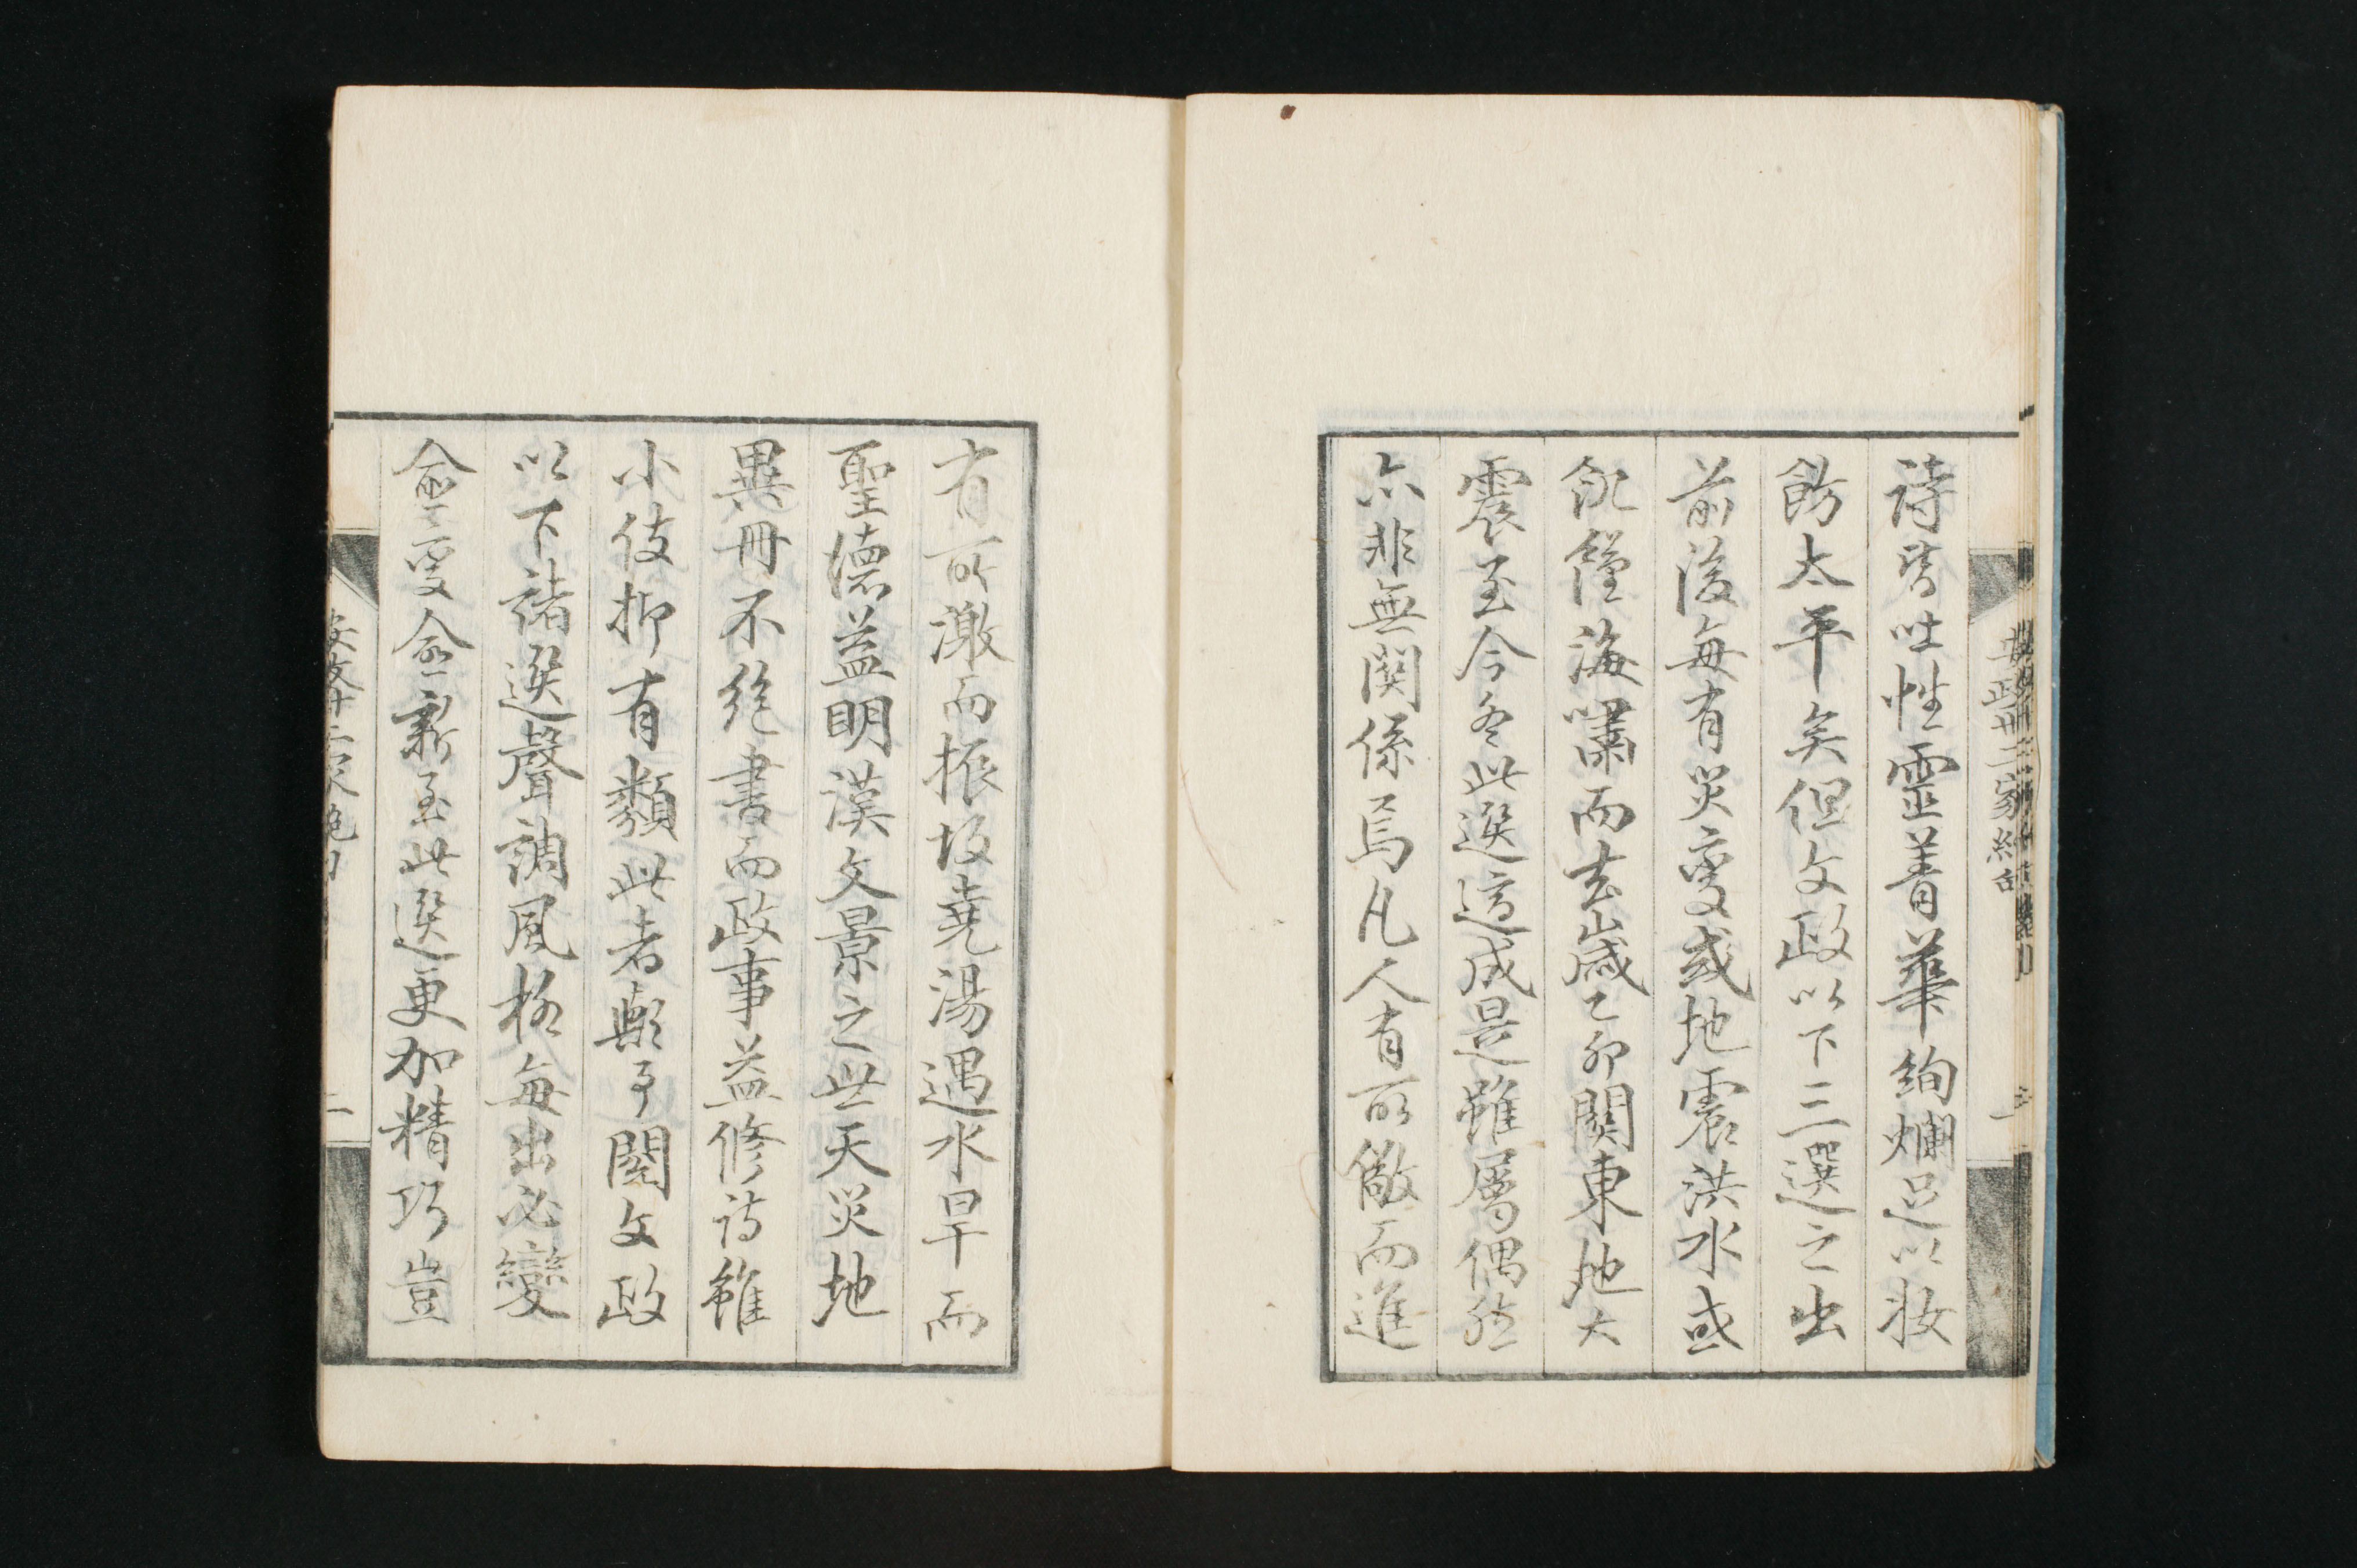 詩皆吐性靈菁華絢爛足以妝
飭太平矣但文政以下三選之出
前後每有災變或地震洪水或
飢饉海嘯而去歲乙卯關東地大
震至今冬此選適成是雖屬偶然
亦非無関係焉凡人有所儆而進
有所激而振故堯湯遇水旱而
聖德益明漢文景之世天災地
異冊不絶書而政事益修詩雖
小伎抑有類此者歟予閲文政
以下諸選聲調風格每出必變
愈變愈新至此選更加精巧豈